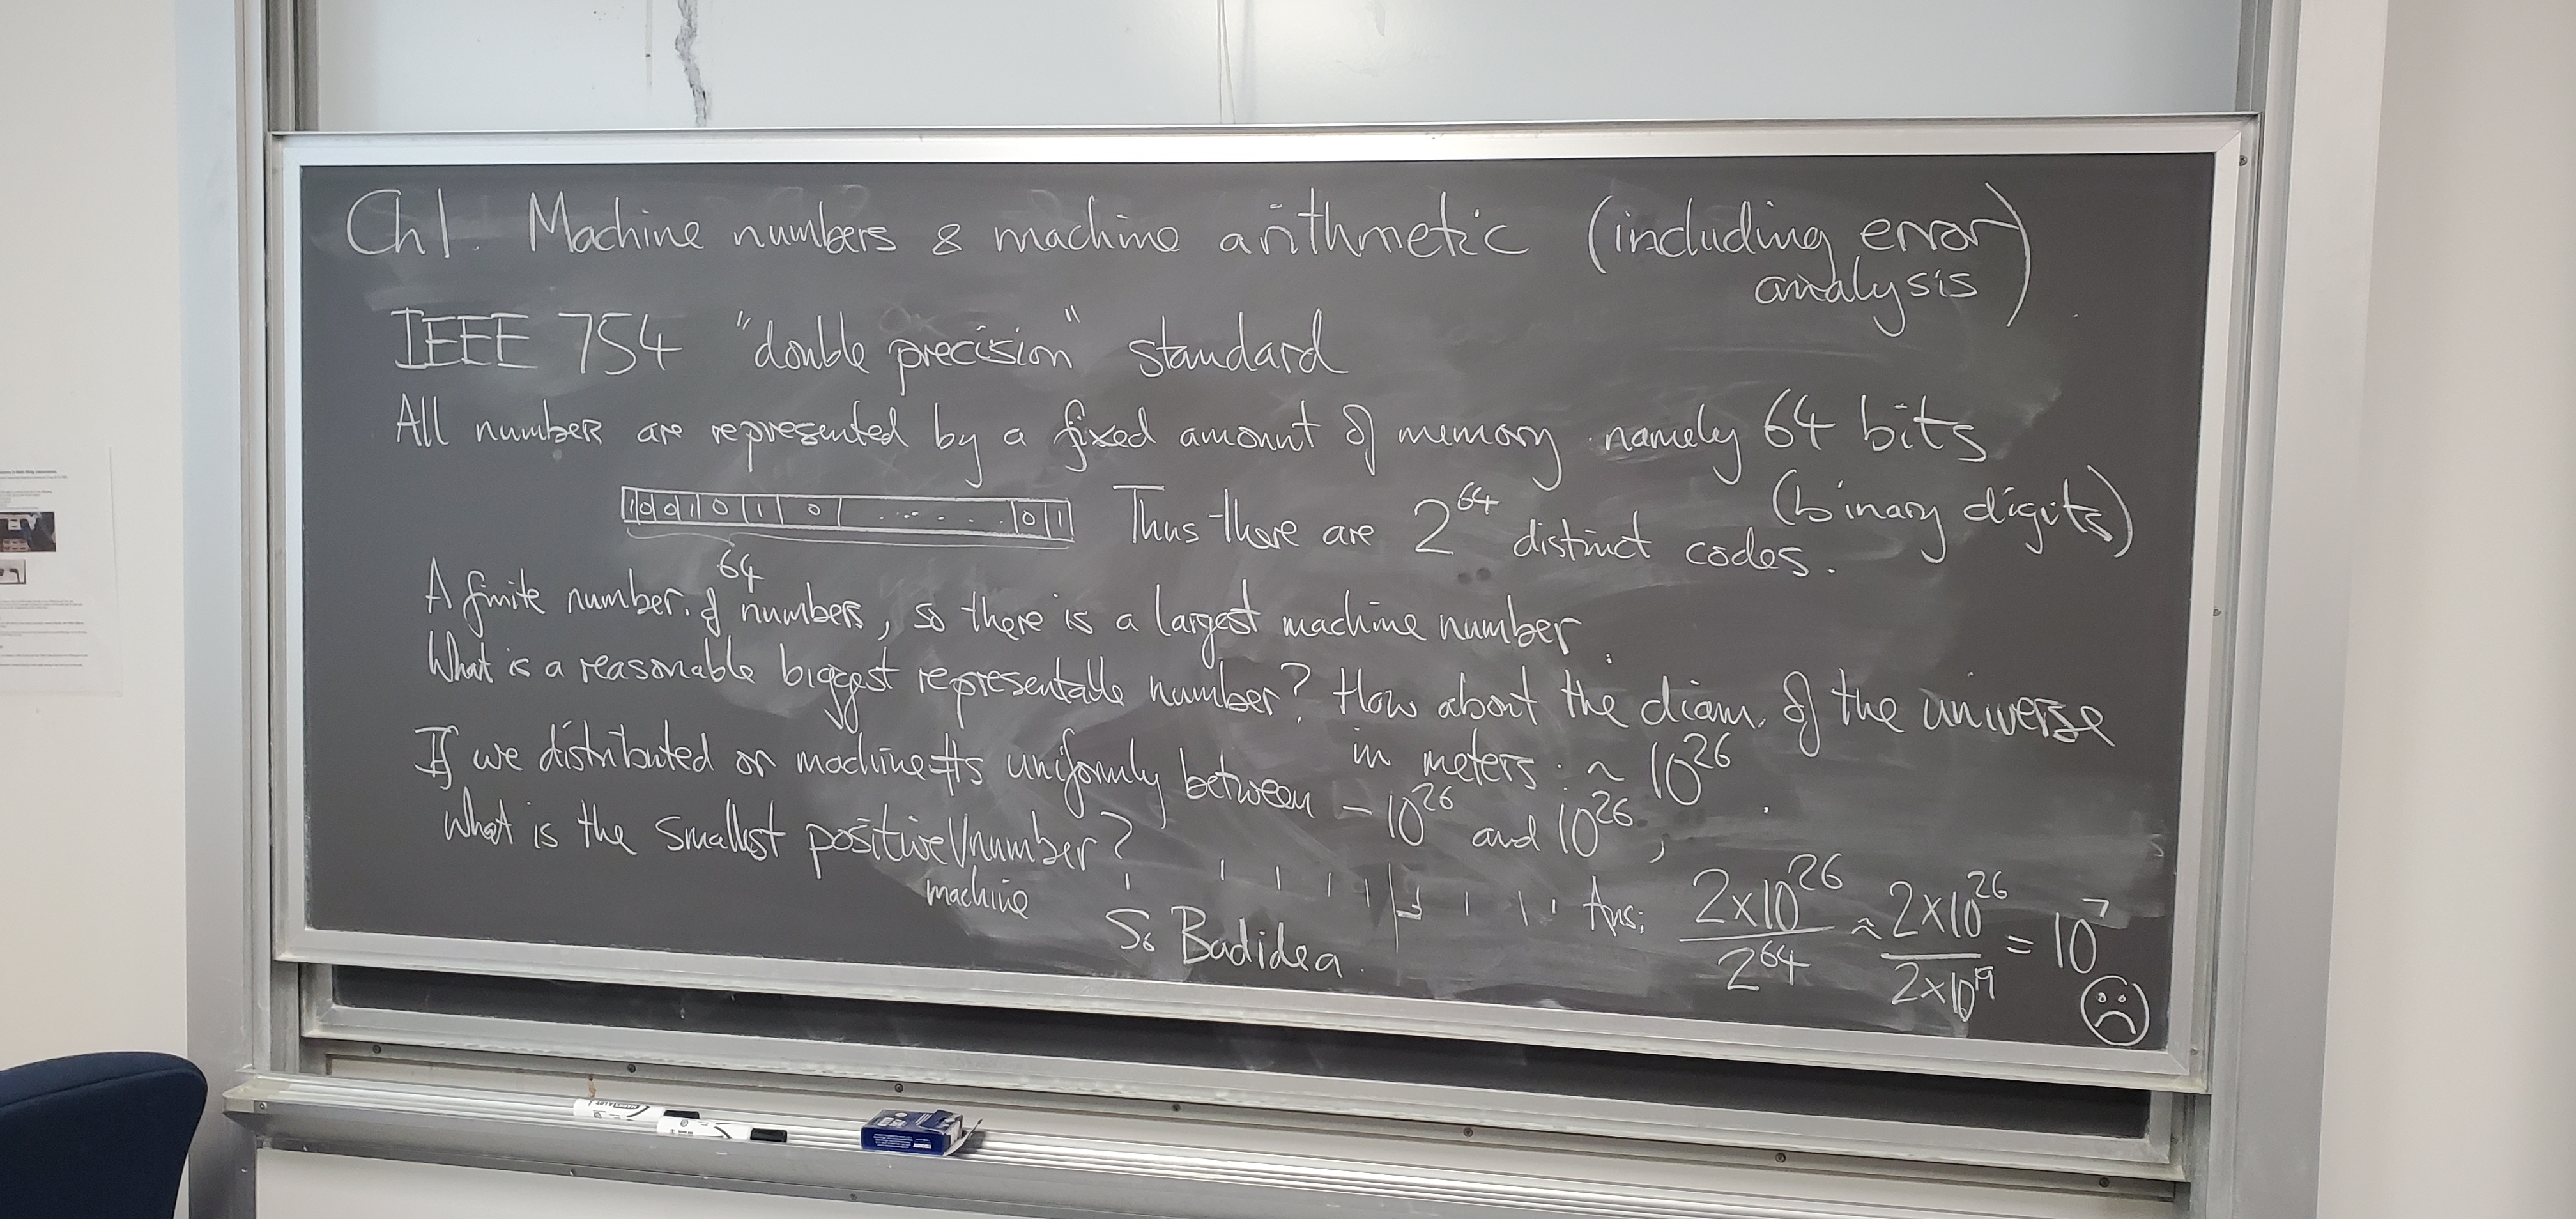 Ch1. Machine numbers & machine arithmetic (including error analysis)
IEEE 754 "double precision" standard
All number are represented by a fixed amount of memory namely 64 bits
(binary digits)
1 0 0 1 0 1 0 . . . . . . 0 1
64
Thus there are 2^64 distinct codes.
A finite number of numbers, so there is a largest machine number.
What is a reasonable biggest representable number? How about the diam. of the universe
in meters: ~ 10^26.
If we distributed or machine #s uniformly between -10^26 and 10^26,
what is the smallest positive machine number?
Ans: 2x10^26 / 2^64 ≈ 2x10^26 / 2x10^19 = 10^7
So Bad idea.